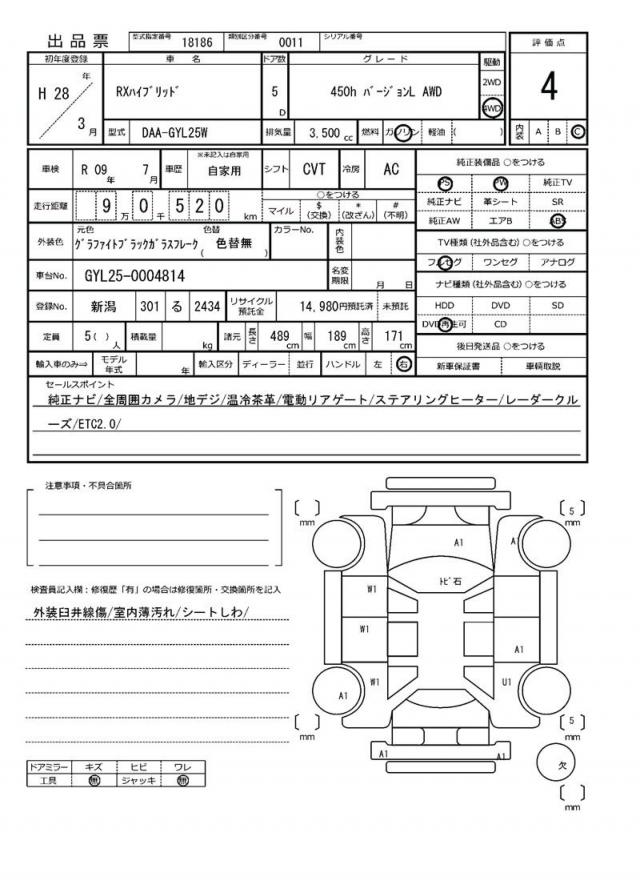 出品票 型式指定番号 18186 類別区分番号 0011 シリアル番号
評価点
4
初年度登録 車名 ドア数 グレード 駆動
H 28 年 3 月 RXハイブリッド 5 D 450h バージョンL AWD 2WD 4WD
型式 DAA-GYL25W 排気量 3,500 cc 燃料 ガソリン 軽油 ( ) 内装 A B C
車検 R 09 年 7 月 車歴 ※未記入は自家用 自家用 シフト CVT 冷房 AC
走行距離 9 万 0 千 5 2 0 km ○をつける マイル $ (交換) * (改ざん) # (不明)
外装色 元色 グラファイトブラックガラスフレーク 色替 ( 色替無 ) カラーNo. 内装色
車台No. GYL25-0004814 名変期限 月 日
登録No. 新潟 301 る 2434 リサイクル預託金 14,980円預託済 未預託
定員 5( ) 人 積載量 kg 諸元 長さ 489 cm 幅 189 cm 高さ 171 cm
輸入車のみ⇒ モデル年式 年 輸入区分 ディーラー 並行 ハンドル 左 右
純正装備品 ○をつける
PS PW 純正TV
純正ナビ 革シート SR
純正AW エアB ABS
TV種類 (社外品含む) ○をつける
フルセグ ワンセグ アナログ
ナビ種類 (社外品含む) ○をつける
HDD DVD SD
DVD再生可 CD
後日発送品 ○をつける
新車保証書 車輌取説
セールスポイント
純正ナビ/全周囲カメラ/地デジ/温冷茶革/電動リアゲート/ステアリングヒーター/レーダークル
ーズ/ETC2.0/
注意事項・不具合箇所
検査員記入欄：修復歴「有」の場合は修復箇所・交換箇所を記入
外装臼井線傷/室内薄汚れ/シートしわ/
ドアミラー キズ ヒビ ワレ
工具 無 ジャッキ 無
[ ] mm
[ 5 ] mm
A1 A1
トビ石
W1
W1
A1
W1 U1
A1
[ ] mm
[ 5 ] mm
A1 A1
欠
[ ] mm